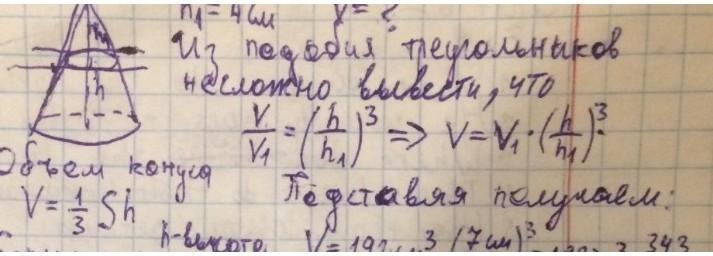 h₁ = 4 см V = ?
Из подобия треугольников
несложно вывести, что
V/V₁ = (h/h₁)³ => V = V₁ · (h/h₁)³
h₁
h
Объем конуса
V = 1/3 Sh
Подставляя получаем:
h - высота
(7 см)³
343